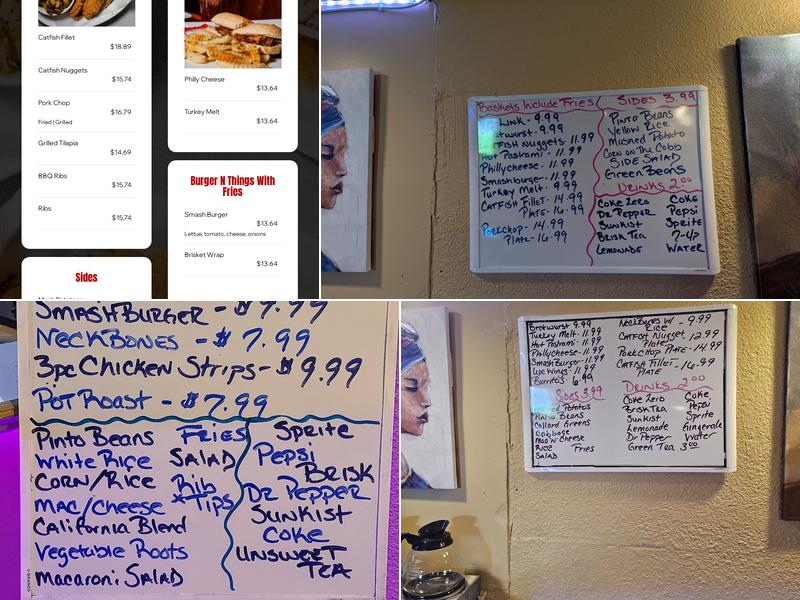 Catfish Fillet
$18.89
Catfish Nuggets
$15.74
Pork Chop
$16.79
Fried | Grilled
Grilled Tilapia
$14.69
BBQ Ribs
$15.74
Ribs
$15.74
Sides
Philly Cheese
$13.64
Turkey Melt
$13.64
Burger N Things With
Fries
Smash Burger
$13.64
Lettue, tomato, cheese, onions
Brisket Wrap
$13.64
Baskets Include Fries
Link - 9.99
9.99
Nuggets - 11.99
Hot Pastrami - 11.99
Phillycheese - 11.99
Smashburger - 11.99
Turkey Melt - 9.99
Catfish Fillet - 14.99
Plate - 16.99
Porkchop - 14.99
Plate - 16.99
Sides 3.99
Pinto Beans
Yellow Rice
Mashed Potato
Corn on the Cobb
Side Salad
Green Beans
Drinks 2.00
Coke Zero Coke
Dr Pepper Pepsi
Sunkist Sprite
Brisk Tea 7-up
Lemonade Water
SmashBurger - $9.99
NeckBones - $7.99
3pc Chicken Strips - $9.99
Pot Roast - $7.99
Pinto Beans
White Rice
Corn/Rice
Mac/Cheese
California Blend
Vegetable Roots
Macaroni Salad
Fries
Salad
Rib
Tips
Sprite
Pepsi
Brisk
Dr Pepper
Sunkist
Coke
Unsweet
Tea
Bratwurst 9.99
Turkey Melt - 11.99
Hot Pastrami - 11.99
Phillycheese - 11.99
SmashBurger - 11.99
6pc Wings - 11.99
Burritos - 6.99
Sides 3.99
Potatos
Pinto Beans
Collard Greens
Cabbage
Mac n Cheese
Rice Fries
Salad
NeckBones w/ - 9.99
Rice
Catfish Nugget 12.99
Plate
PorkChop Plate - 14.99
Catfish Fillet - 16.99
Plate
Drinks 2.00
Coke Zero Coke
Brisk Tea Pepsi
Sunkist Sprite
Lemonade Gingerale
Dr Pepper Water
Green Tea 3.00